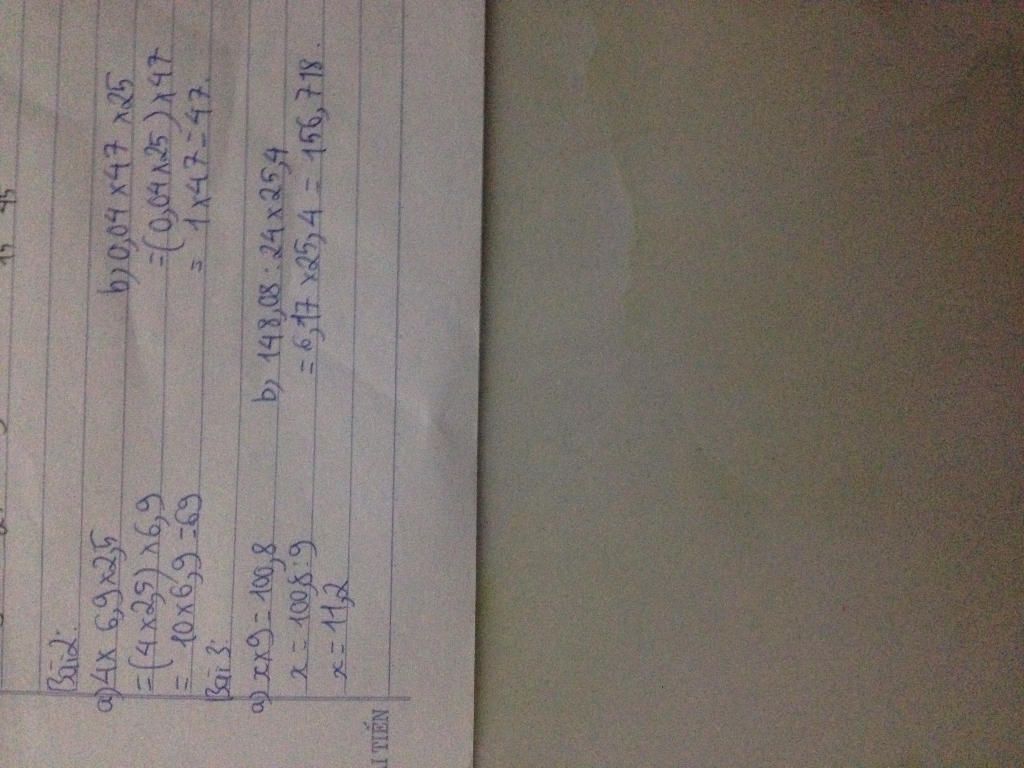 15 45
Bài 2:
a) 4 x 6,9 x 2,5
= (4 x 2,5) x 6,9
= 10 x 6,9 = 69
b) 0,04 x 47 x 25
= (0,04 x 25) x 47
= 1 x 47 = 47.
Bài 3:
a) x x 9 = 100,8
x = 100,8 : 9
x = 11,2
b) 148,08 : 24 x 25,4
= 6,17 x 25,4 = 156,718.
TIẾN